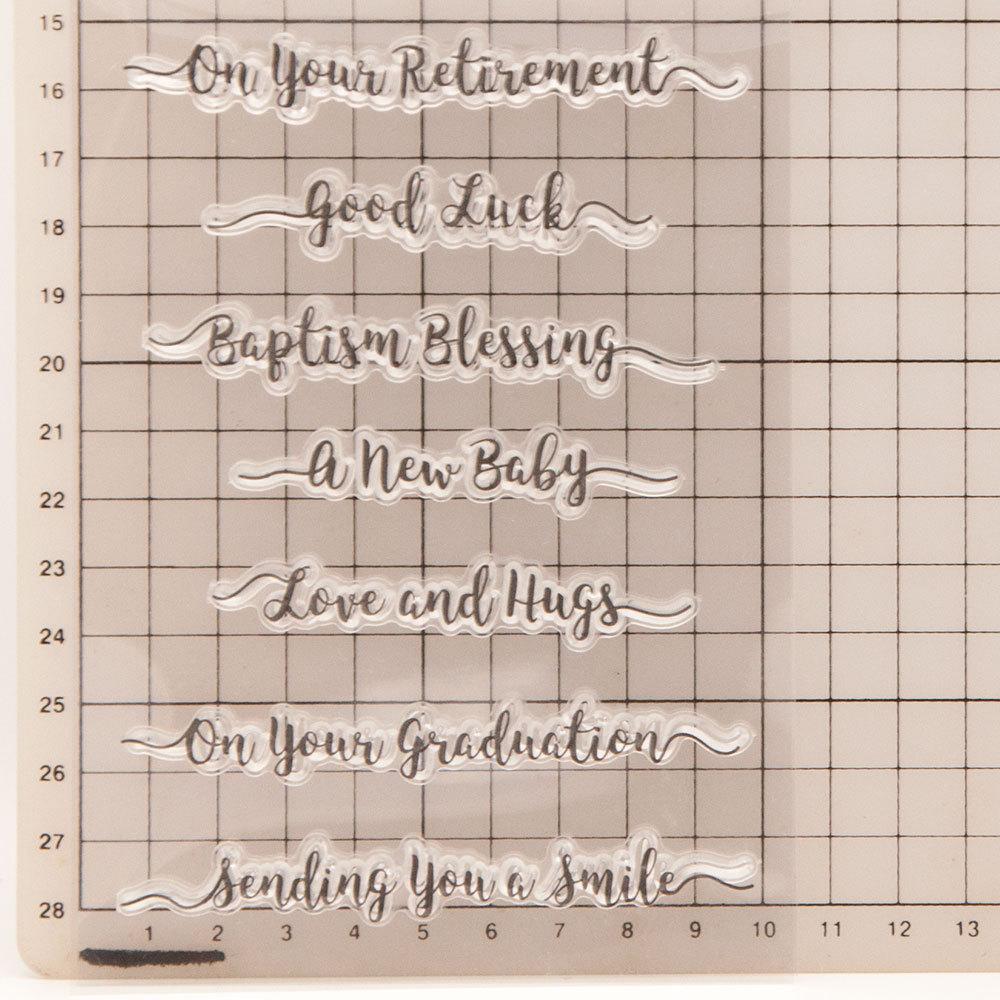 15
On Your Retirement
16
17
Good Luck
18
19
Baptism Blessing
20
21
A New Baby
22
23
Love and Hugs
24
25
On Your Graduation
26
27
Sending You a Smile
28
1 2 3 4 5 6 7 8 9 10 11 12 13